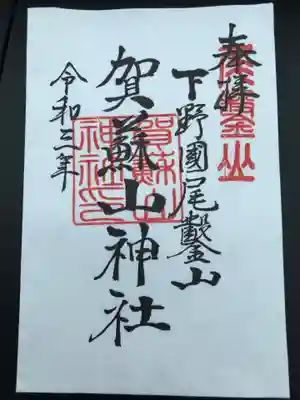 奉拝
下野國尾鑿山
賀蘇山神社
令和三年
賀蘇山神社印